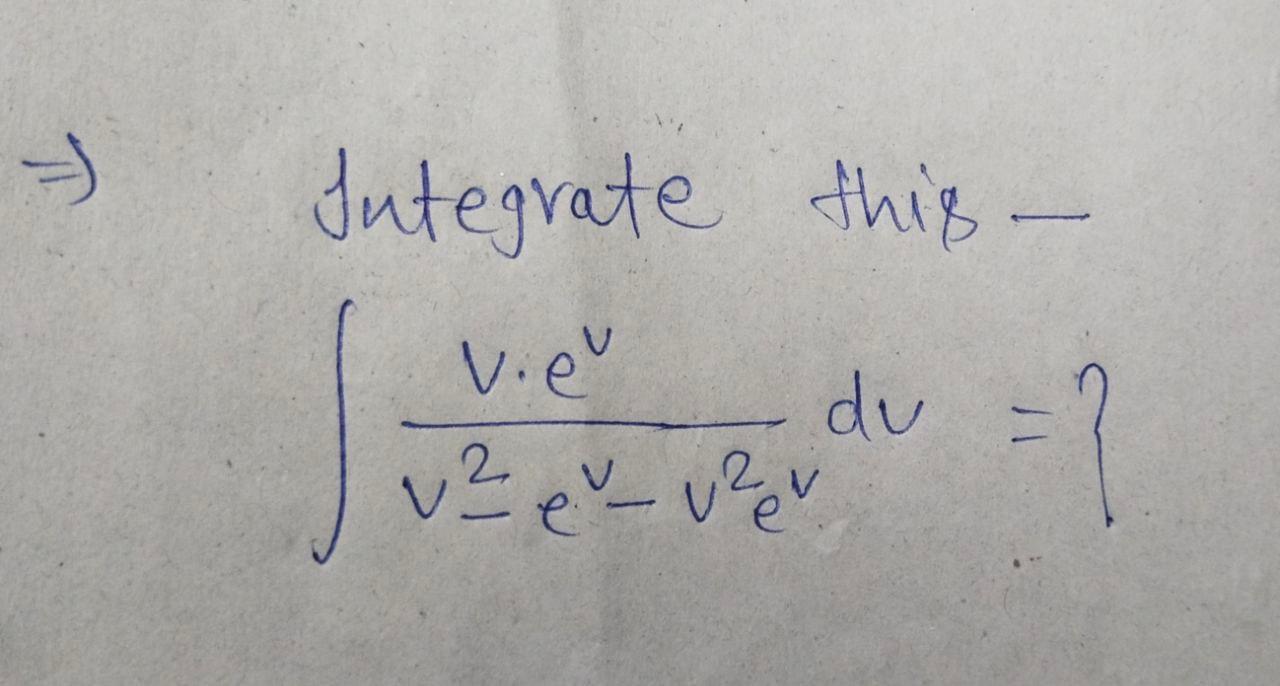 ⇒ Integrate this —
∫ v·eᵛ / (v² - eᵛ - v²eᵛ) dv = ?